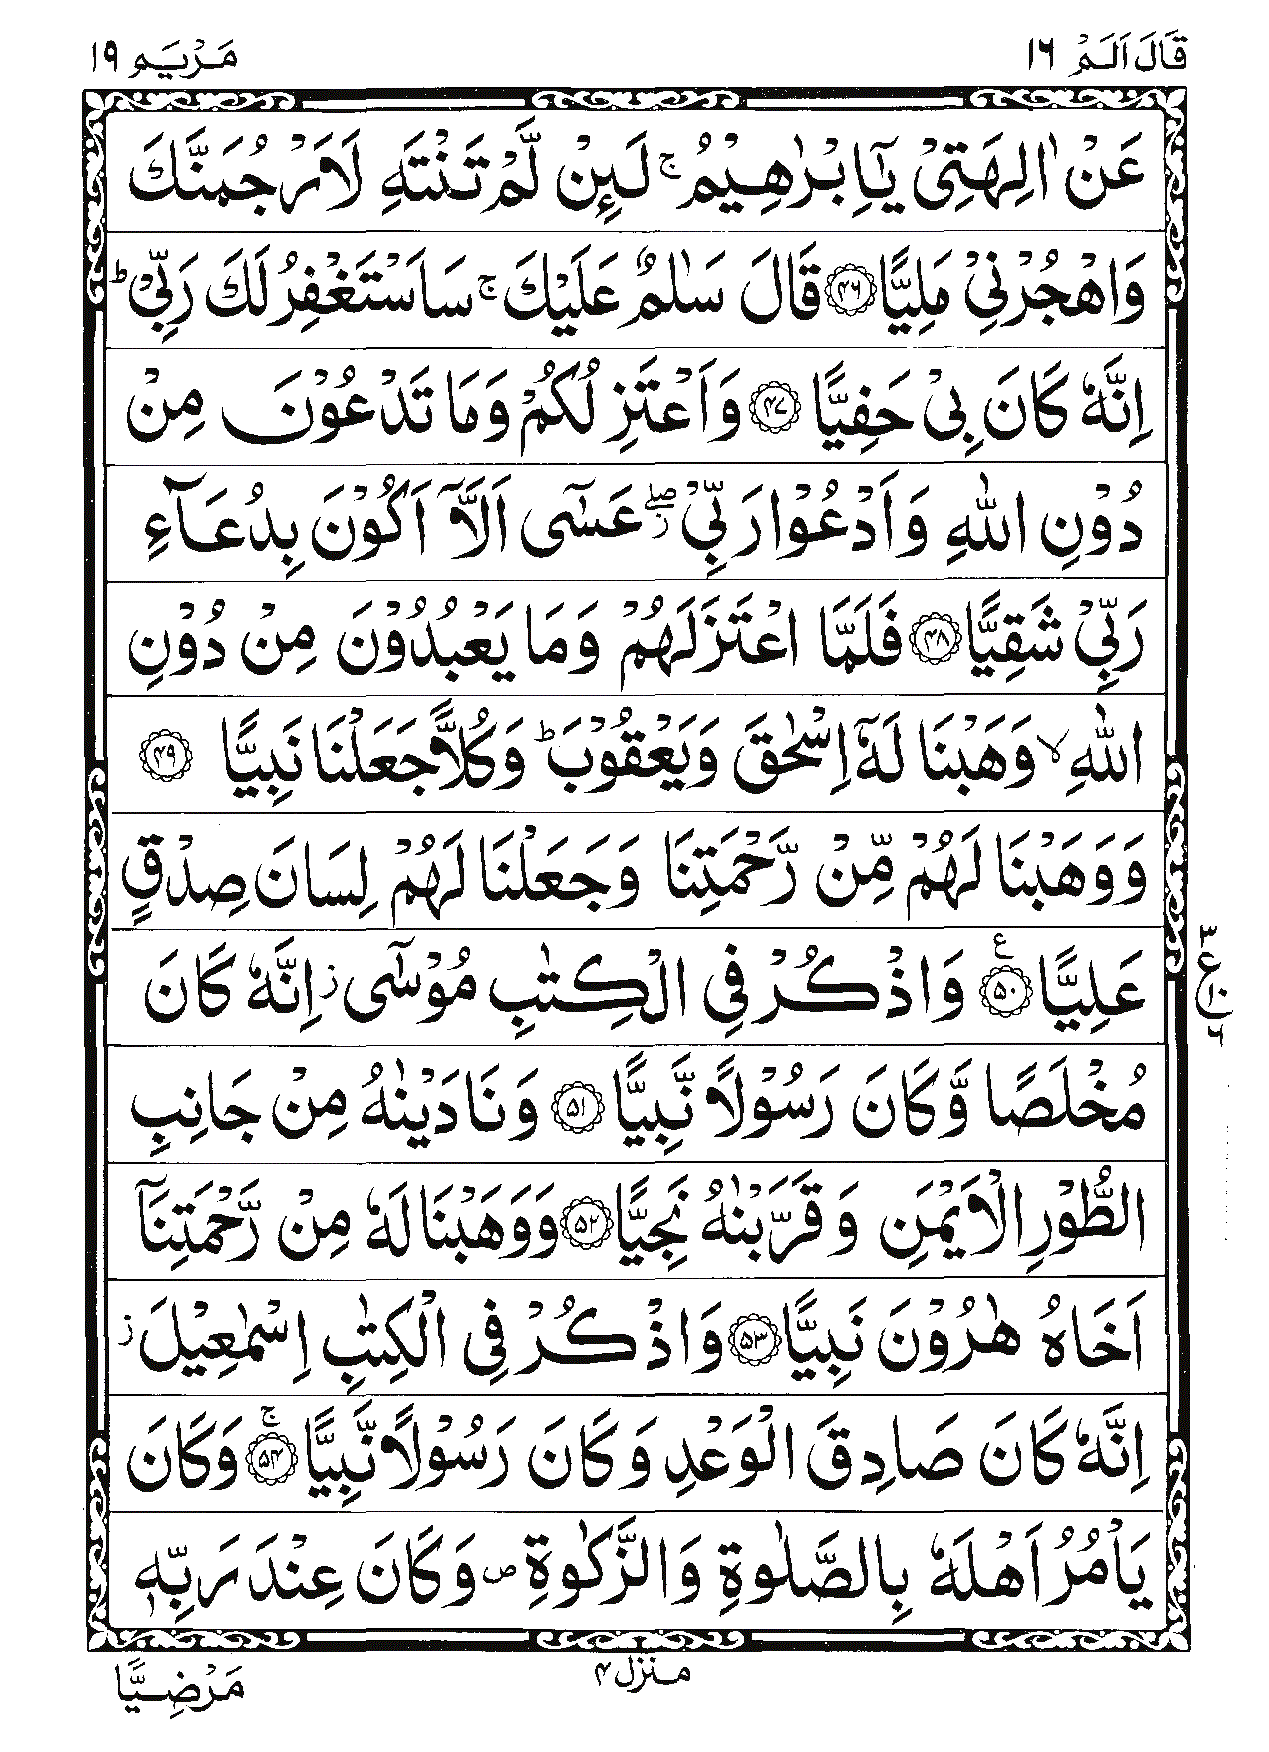 قَالَ اَلَمْ ١٦
مَرْيَم ١٩
عَنْ اٰلِهَتِىْ يٰۤاِبْرٰهِيْمُ ۚ لَٮِٕنْ لَّمْ تَنْتَهِ لَاَرْجُمَنَّكَ
وَاهْجُرْنِىْ مَلِيًّا ﴿۴۶﴾ قَالَ سَلٰمٌ عَلَيْكَ ۚ سَاَسْتَغْفِرُ لَكَ رَبِّىْ ؕ
اِنَّهٗ كَانَ بِىْ حَفِيًّا ﴿۴۷﴾ وَاَعْتَزِلُكُمْ وَمَا تَدْعُوْنَ مِنْ
دُوْنِ اللّٰهِ وَاَدْعُوْا رَبِّىْ ۖ عَسٰٓى اَلَّاۤ اَكُوْنَ بِدُعَآءِ
رَبِّىْ شَقِيًّا ﴿۴۸﴾ فَلَمَّا اعْتَزَلَهُمْ وَمَا يَعْبُدُوْنَ مِنْ دُوْنِ
اللّٰهِ ۙ وَهَبْنَا لَهٗۤ اِسْحٰقَ وَيَعْقُوْبَ ؕ وَكُلًّا جَعَلْنَا نَبِيًّا ﴿۴۹﴾
وَوَهَبْنَا لَهُمْ مِّنْ رَّحْمَتِنَا وَجَعَلْنَا لَهُمْ لِسَانَ صِدْقٍ
عَلِيًّا ﴿۵۰﴾ ع وَاذْكُرْ فِى الْكِتٰبِ مُوْسٰٓى ز اِنَّهٗ كَانَ
٣ ع ١٠ ٦
مُخْلَصًا وَّكَانَ رَسُوْلًا نَّبِيًّا ﴿۵۱﴾ وَنَادَيْنٰهُ مِنْ جَانِبِ
الطُّوْرِ الْاَيْمَنِ وَقَرَّبْنٰهُ نَجِيًّا ﴿۵۲﴾ وَوَهَبْنَا لَهٗ مِنْ رَّحْمَتِنَاۤ
اَخَاهُ هٰرُوْنَ نَبِيًّا ﴿۵۳﴾ وَاذْكُرْ فِى الْكِتٰبِ اِسْمٰعِيْلَ ز
اِنَّهٗ كَانَ صَادِقَ الْوَعْدِ وَكَانَ رَسُوْلًا نَّبِيًّا ﴿۵۴﴾ ۚ وَكَانَ
يَاْمُرُ اَهْلَهٗ بِالصَّلٰوةِ وَالزَّكٰوةِ ص وَكَانَ عِنْدَ رَبِّهٖ
منزل ۴
مَرْضِيًّا